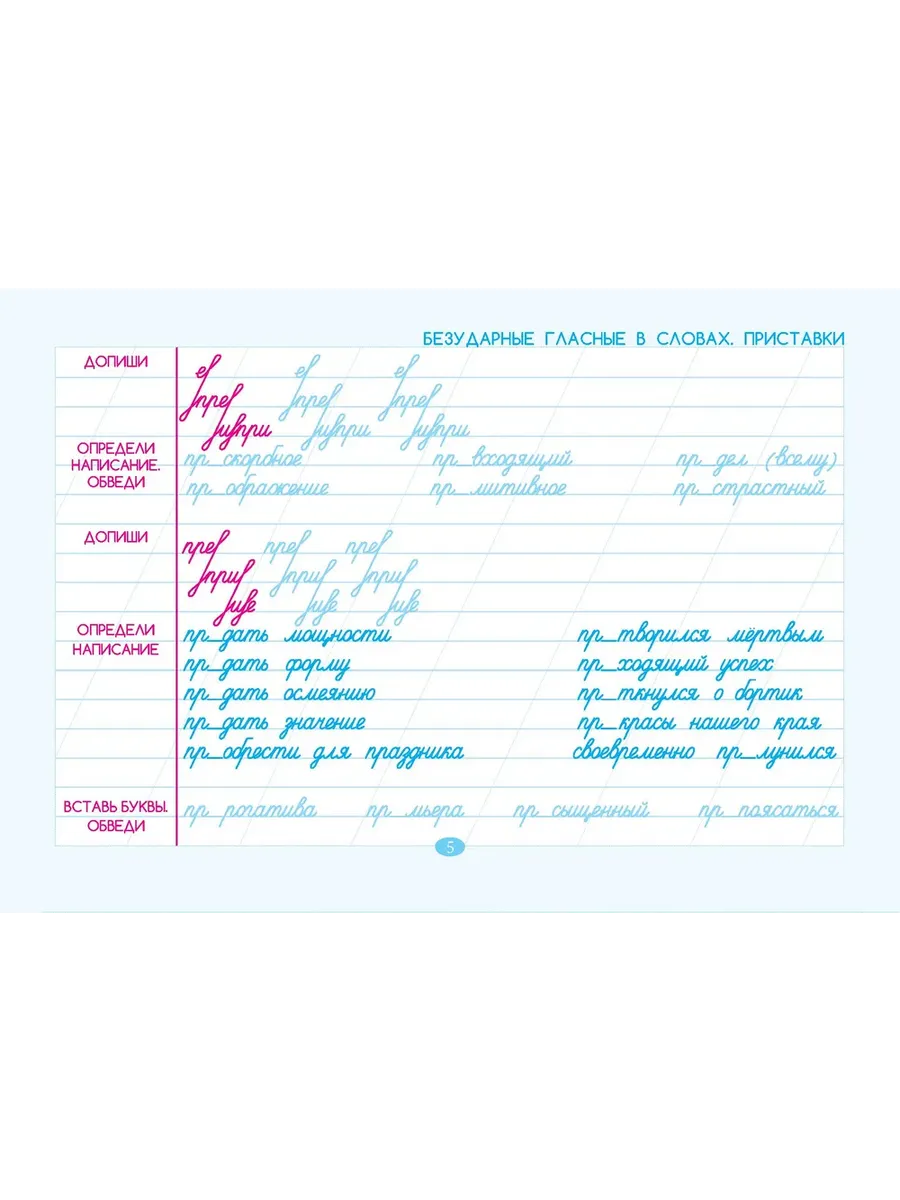 БЕЗУДАРНЫЕ ГЛАСНЫЕ В СЛОВАХ. ПРИСТАВКИ
ДОПИШИ
е е е
пре пре пре
при при при
ОПРЕДЕЛИ
НАПИСАНИЕ.
ОБВЕДИ
пр_скорбное пр_входящий пр_дел (всему)
пр_ображение пр_митивное пр_страстный
ДОПИШИ
пре пре пре
при при при
ОПРЕДЕЛИ
НАПИСАНИЕ
пр_дать мощности пр_творился мёртвым
пр_дать форму пр_ходящий успех
пр_дать осмеянию пр_ткнулся о бортик
пр_дать значение пр_красы нашего края
пр_обрести для праздника своевременно пр_лунился
ВСТАВЬ БУКВЫ.
ОБВЕДИ
пр_рогатива пр_мьера пр_сыщенный пр_поясаться
5